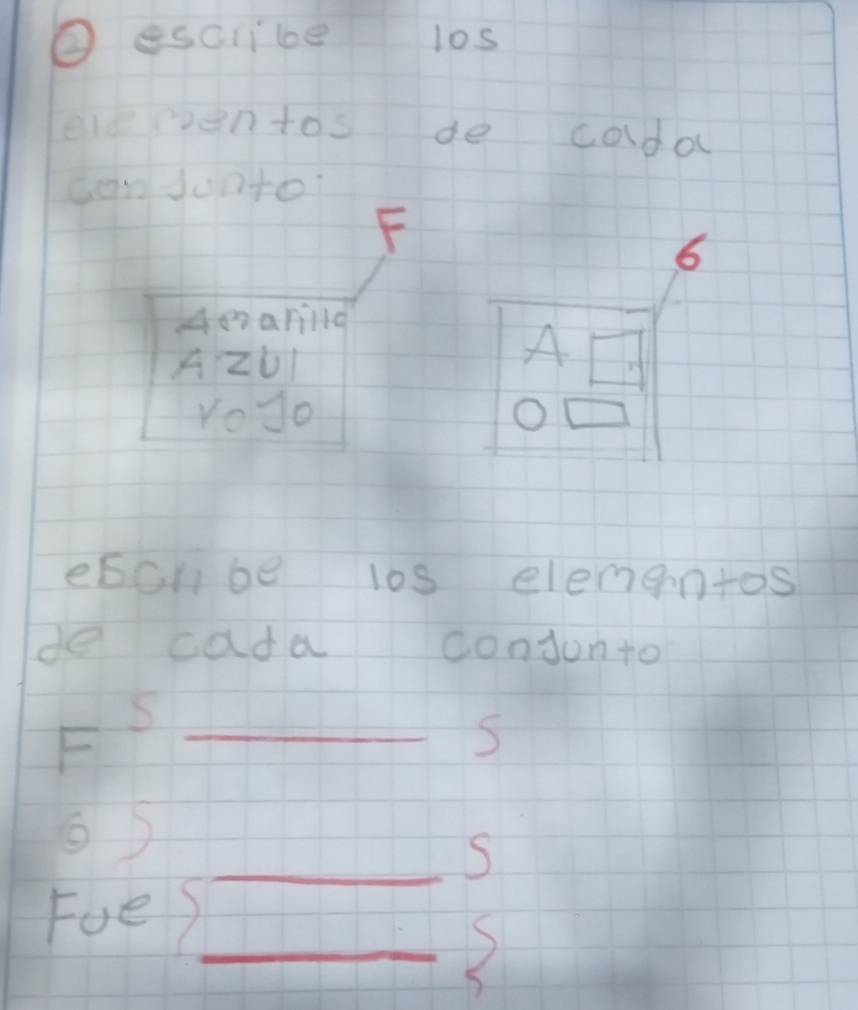 ② escribe los
elementos de cada
conjunto.
F
6
Amarillo
Azul
rojo
A
O
escribe los elementos
de cada conjunto
F S S
6 S S
Fue { }